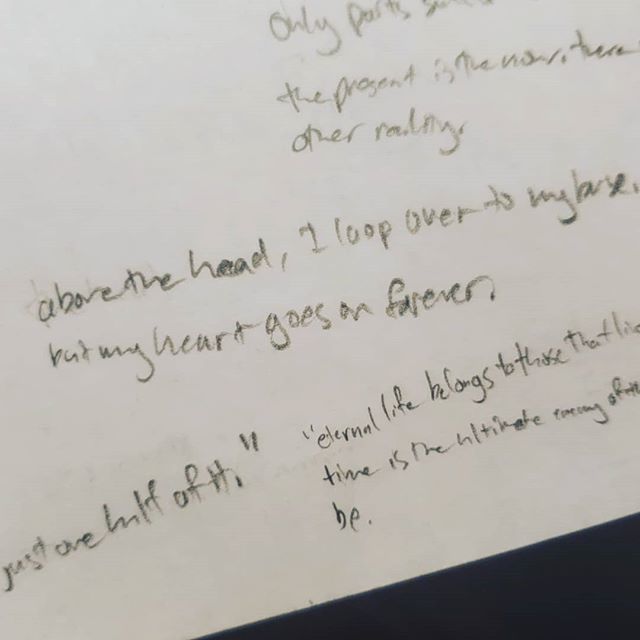 only parts
the present is the now, there
other reality,
above the head, I loop over to my
but my heart goes on forever.
just one half of it."
"eternal life belongs to those that live
time is the ultimate
be.